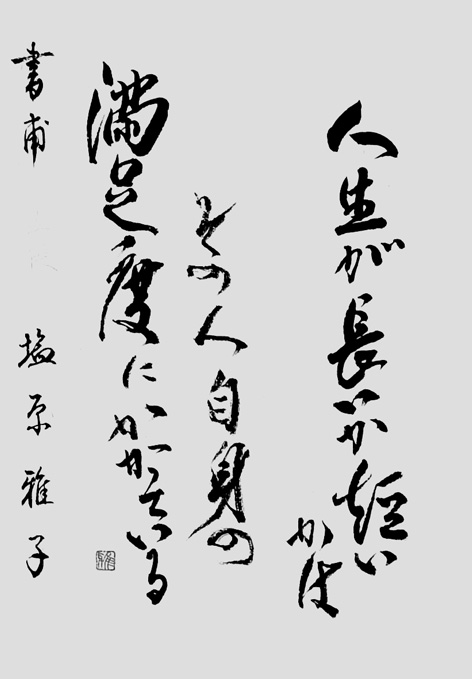 人生が長いか短い
かは
その人自身の
満足度にかかっている
書甫
塩原雅子